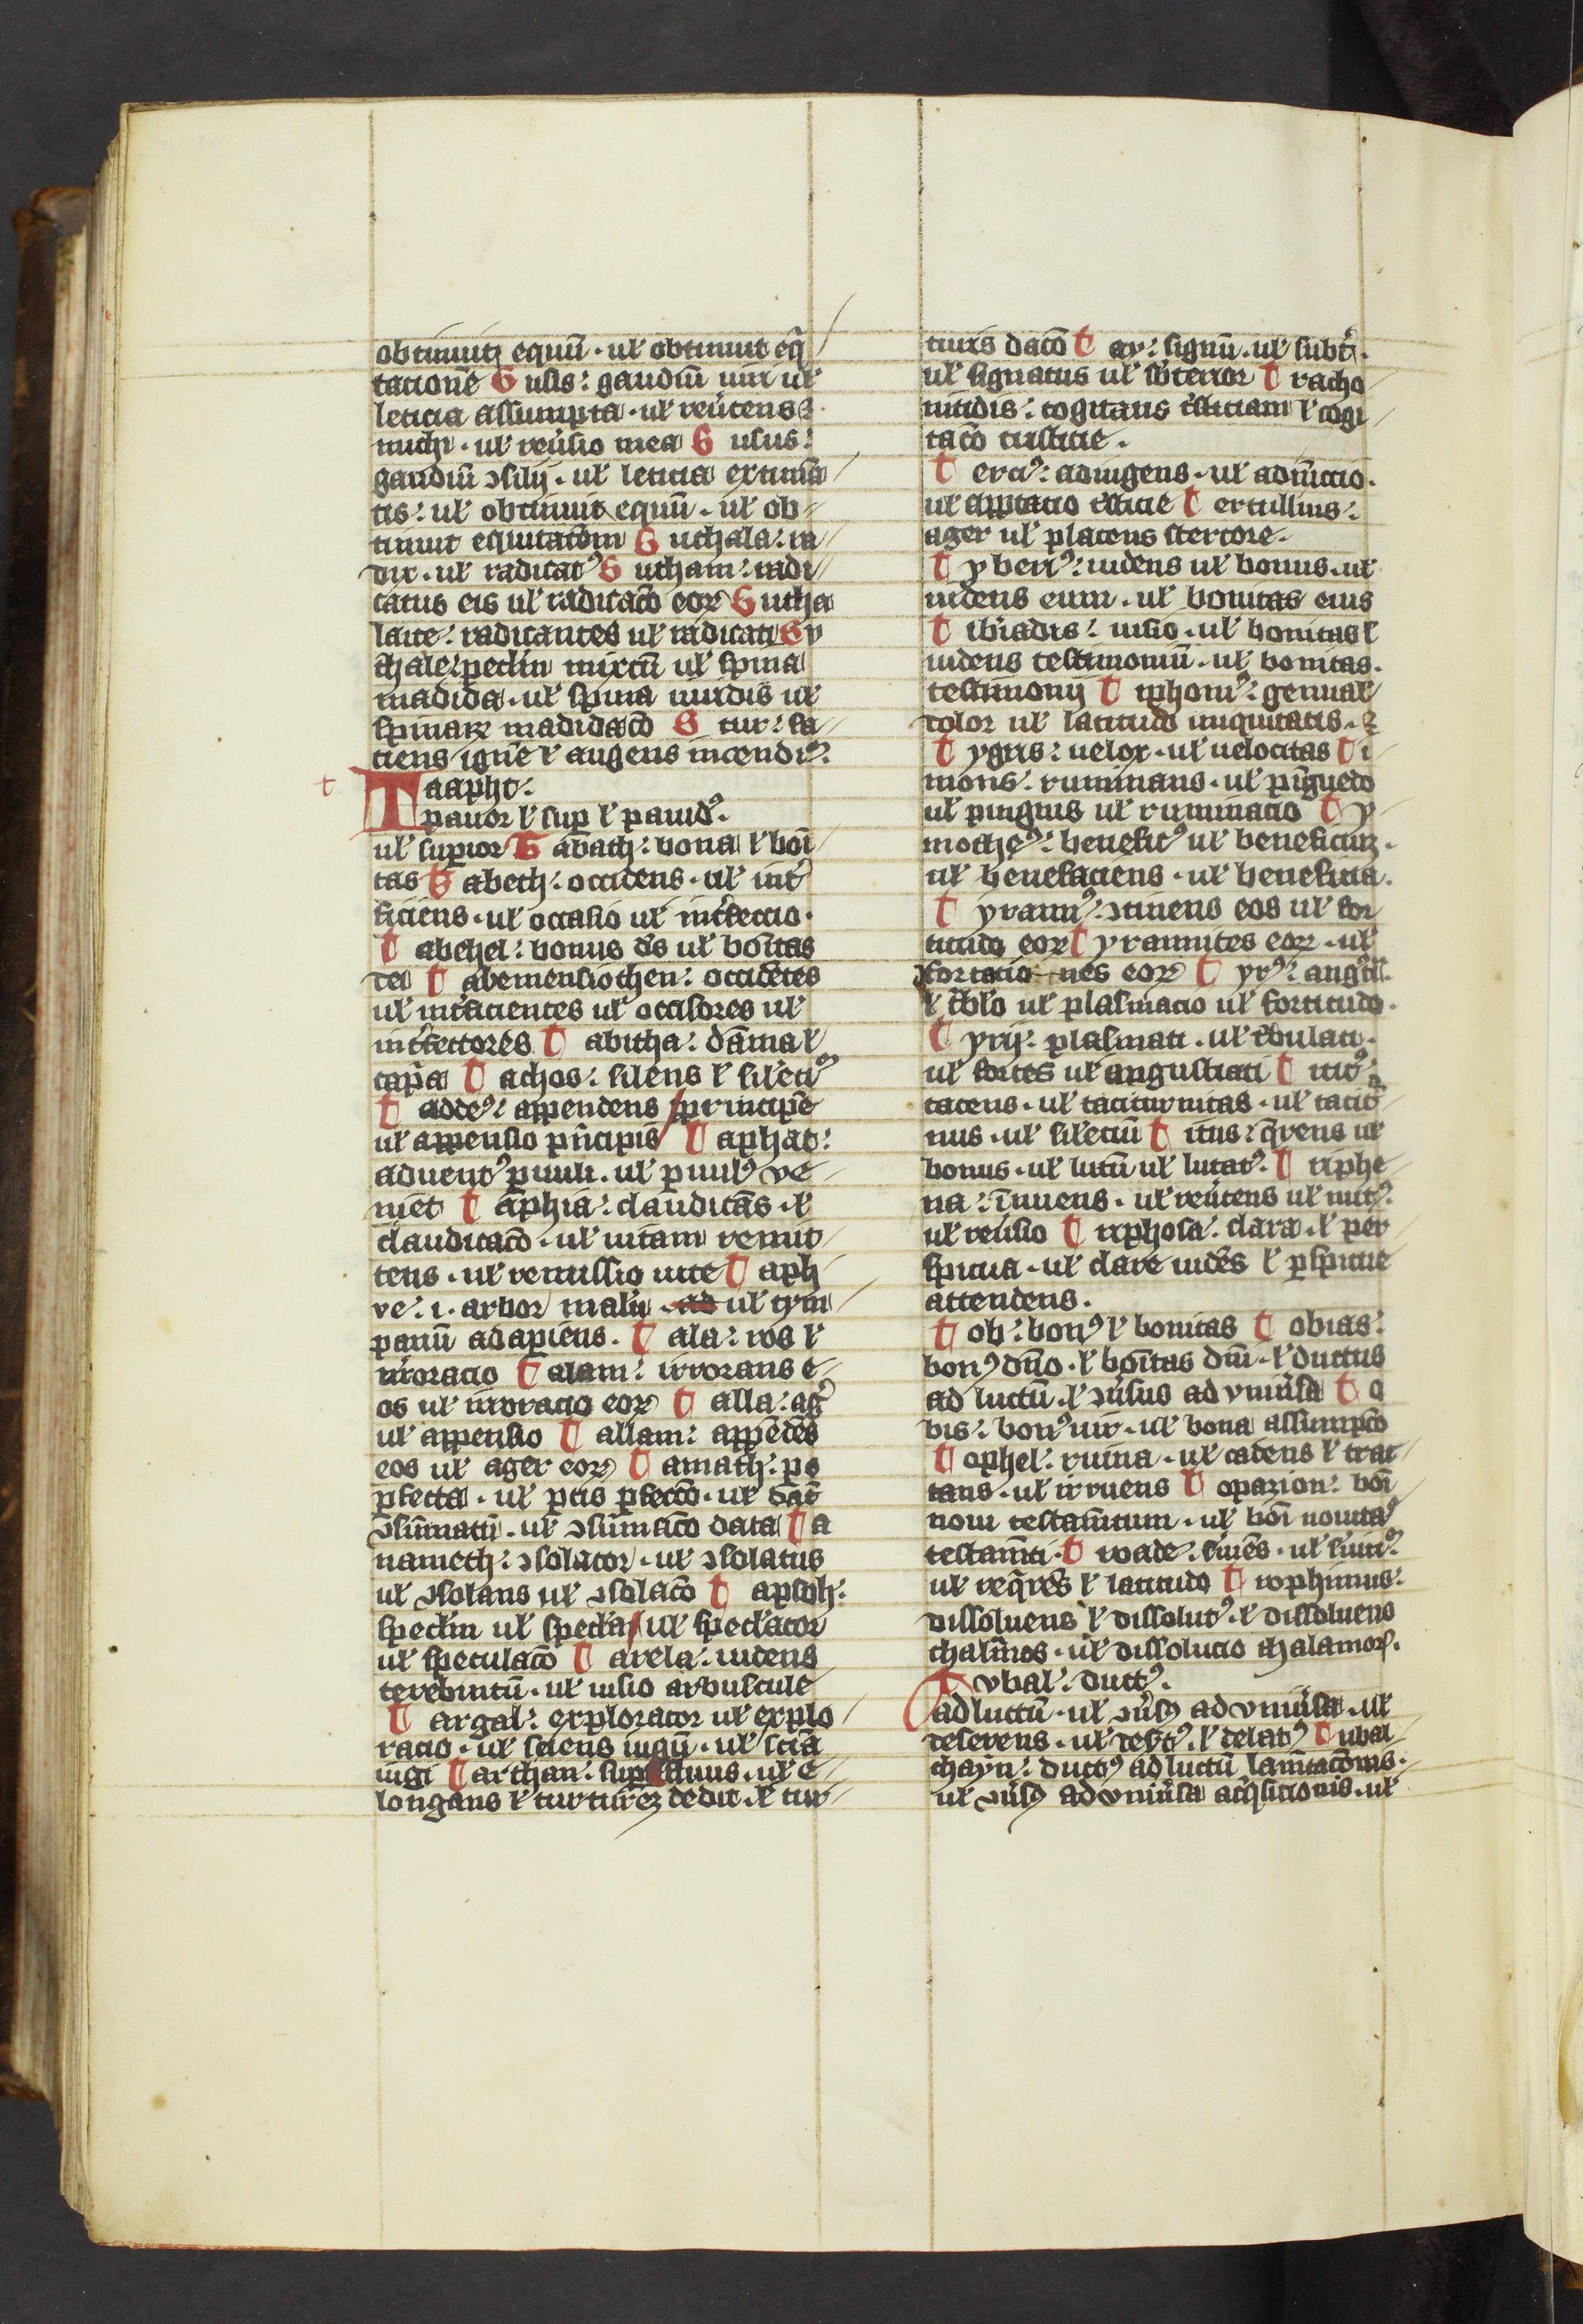 obtinuit equū · ul' obtinuit eq̄
tacionē Susis: gaudiū uiri ul'
leticia assumpta · ul' reūtens
michi · ul' reūsio mea Susus:
gaudiū ɔsilij · ul' leticia extimā
tis: ul' obtinuit equū · ul' ob
tinuit equitacōm Suthala: ra
dix · ul' radicatꝰ Sutham: radi
catus eis ul' radicacō eoꝝ Sutha
laite: radicantes ul' radicati Sy
chale: peclm mixtū ul' spina
madida · ul' spina uiridis ul'
spinaꝝ madidacō S tur: fa
ciens ignē l' augens incendiꝰ:
t
Taapht:
pauor l' sup l' pauidꝰ.
ul' superior Tabath: bona l' boi
tas Tabeth: occidens · ul' int̄
ficiens · ul' occasio ul' int̄feccio ·
Tabehel: bonus dꝰs ul' bōitas
dei Tabemensiothen: occidētes
ul' int̄ficientes ul' occisores ul'
int̄fectores Tabitha: dāma l'
cap̄a Tachos: silens l' silētiꝰ
Taddeꝰ: appendens principē
ul' appensio pn̄cipis Taphat:
aduentꝰ p̄uuli · ul' p̄uulꝰ ve
niet Taphia: claudicās · l'
claudicacō · ul' uitam remit
tens · ul' remissio uite Taph
ve: i · arbor mali · ul' tym
panū adapiens. Tala: ros l'
irroracio Talam: irrorans e
os ul' irroracio eoꝝ Talla: agꝰ
ul' appensio Tallam: appēdēs
eos ul' ager eoꝝ Tamath: po
p̄fecta · ul' p̄tis p̄feccō · ul' dat
ɔsūmatū · ul' ɔsūmacō data Ta
nameth: ɔsolator · ul' ɔsolatus
ul' ɔsolans ul' ɔsolacō Tapsoh:
speclm ul' specla ul' speclator
ul' speculacō Tarela: uidens
terebintū · ul' uisio arbuscule
Targal: explorator ul' explo
racio · ul' sciens iugū · ul' scia
iugi Tarthan: ul' e
longans l' turturez dedit · l' tur
turis dacō Tay: signū · ul' subt̄ ·
ul' signatus ul' sbterior Tracho
nitidis: cogitans t̄sticiam l' cogi
tacō tristicie ·
Terciꝰ: adiugens · ul' adiūctio ·
ul' aptacio t̄sticie Tertullius:
ager ul' placens stercore ·
Tyberiꝰ: uidens ul' bonus · ul'
uidens eum · ul' bonitas eius
Tibiadis: uisio · ul' bonitas l'
uidens testimoniū · ul' bonitas ·
testimonij Tiphoniꝰ: genual'
dolor ul' latitudo iniquitatis ·
Tygris: uelox · ul' uelocitas Ti
mons: ruminans · ul' pīguedo
ul' pinguis ul' ruminacio Ty
motheꝰ: benefitꝰ ul' beneficiuz ·
ul' benefaciens · ul' beneficia ·
Tyrannꝰ: ɔtinens eos ul' for
titudo eoꝝ Tyrannites eoꝝ · ul'
ɔfortacio nes eoꝝ Tyrꝰ:
l' t̄bl'o ul' plasmacio ul' fortitudo ·
Tyrij: plasmati · ul' t̄bulati ·
ul' fortes ul' angustiati Titiꝰ:
tacens · ul' taciturnitas · ul'
nus · ul' silētiū Titus: q̄rens ul'
bonus · ul' lutū ul' lutatꝰ. Triphe
na: īnuens · ul' reūtens ul' nutꝰ:
ul' reūsio Triphosa: clara · l' per
spicua · ul' clare uidēs l' p̄spicue
attendens ·
Tob: bonꝰ l' bonitas Tobias:
bonꝰ dn̄o · l' bōitas dn̄i · l' ductus
ad luctū · l' ɔūsus ad vniūsa To
bis: bonꝰ uir · ul' bona assumpcō
Tophel: ruina · ul' cadens l' trac
tans · ul' irruens Topazion: boi
noui testamētum · ul' boi nouitaꝰ
testamēti · Troade:
ul' req̄rēs l' latitudo Trophimus:
dissoluens l' dissolutꝰ · l' dissoluens
thalmos · ul' dissolucio thalamoꝝ ·
Tvbal: ductꝰ.
ad luctū · ul' ɔūsꝰ ad vniūsa · ul'
deferens · ul' · l' delatꝰ Tubal
chayn: ductꝰ ad luctū lamētacōnis ·
ul' ɔūsꝰ ad vniūsa acq̄sicionis · ul'